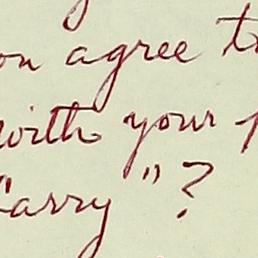 on agree t
with your
Carry"?